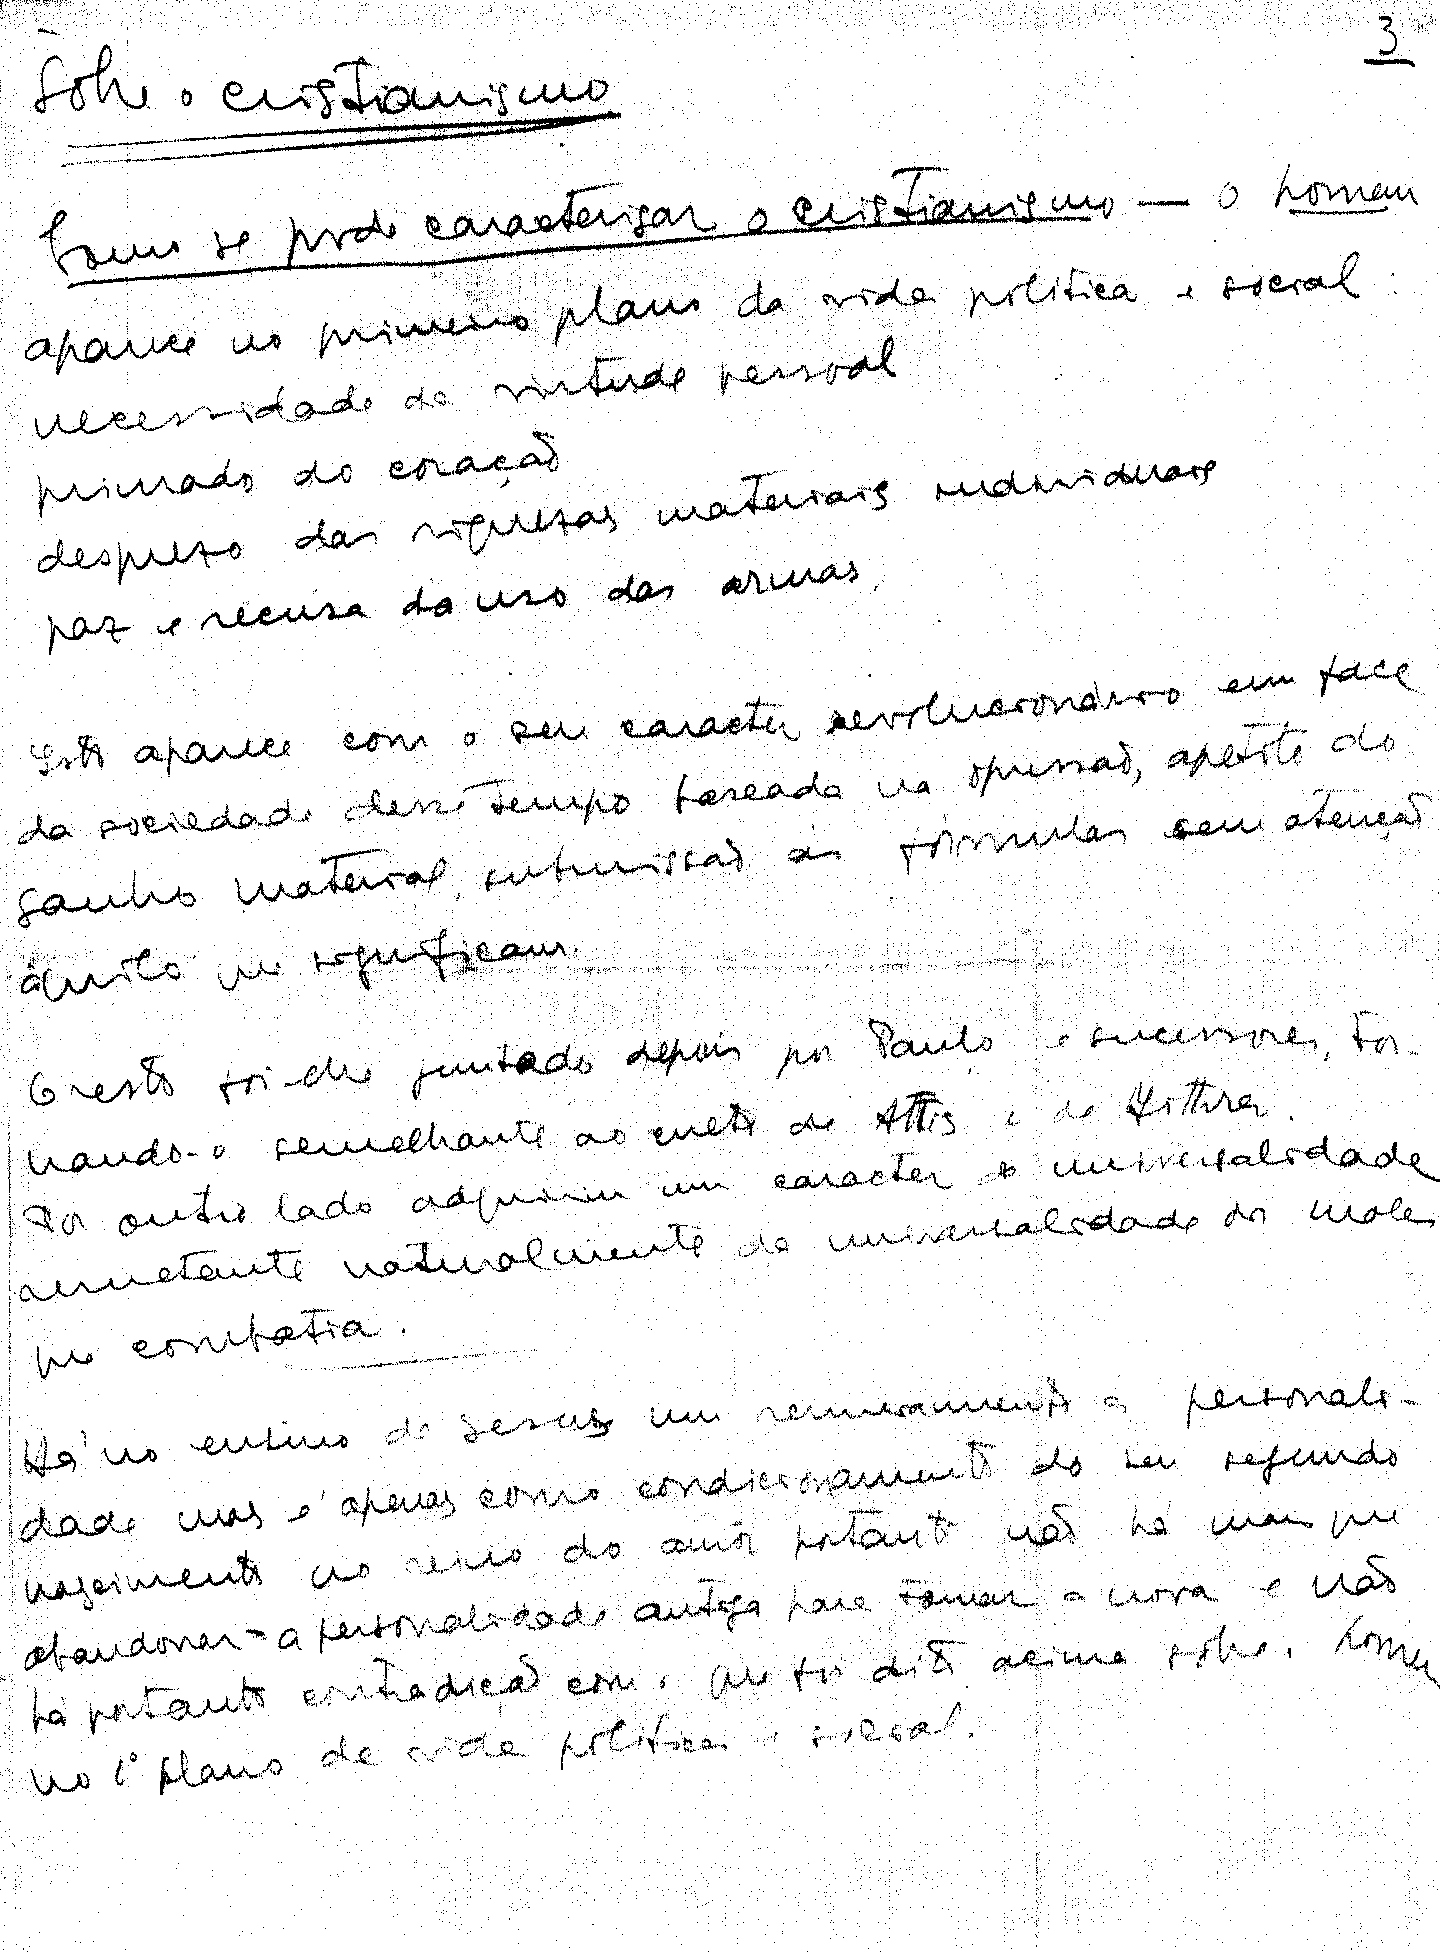 3
Sôbre o cristianismo
Como se pode caracterisar o cristianismo — o homem
aparece no primeiro plano da vida política e social:
necessidade da virtude pessoal
primado do coração
despreso das riquesas materiais individuais
paz e recusa do uso das armas.
Isto aparece com o seu caracter revolucionário em face
da sociedade desse tempo baseada na opressão, apetite do
ganho material, submissão às fórmulas sem atenção
àquilo que significam.
O resto foi-lhe juntado depois por Paulo e sucessores, tor-
nando-o semelhante ao culto de Attis e de Mithra.
Por outro lado adquiriu um caracter de universalidade
resultante naturalmente da universalidade dos males
que combatia.
Há no ensino de Jesus um renunciamento à personali-
dade mas é apenas como condicionamento do seu segundo
nascimento no reino do amor portanto não há mais que
abandonar a personalidade antiga para tomar a nova e não
há portanto contradição com o que foi dito acima sobre o homem
no 1º plano da vida política e social.